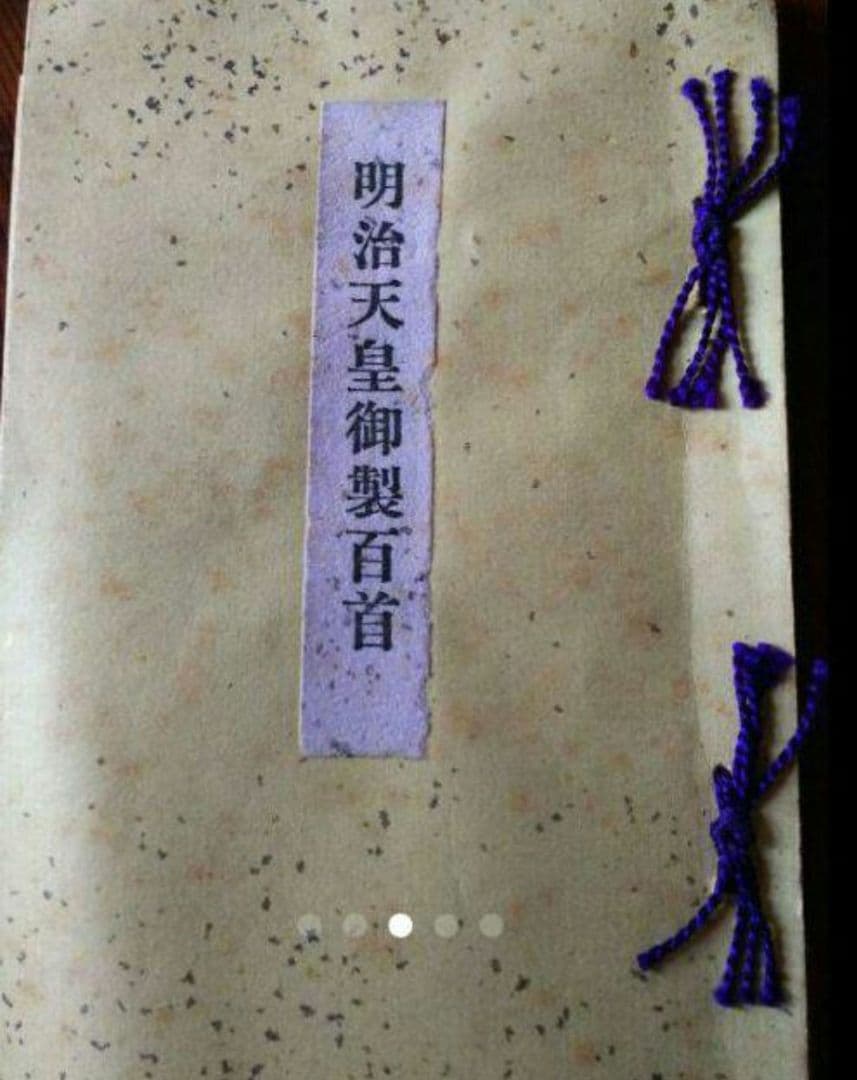 明治天皇御製百首